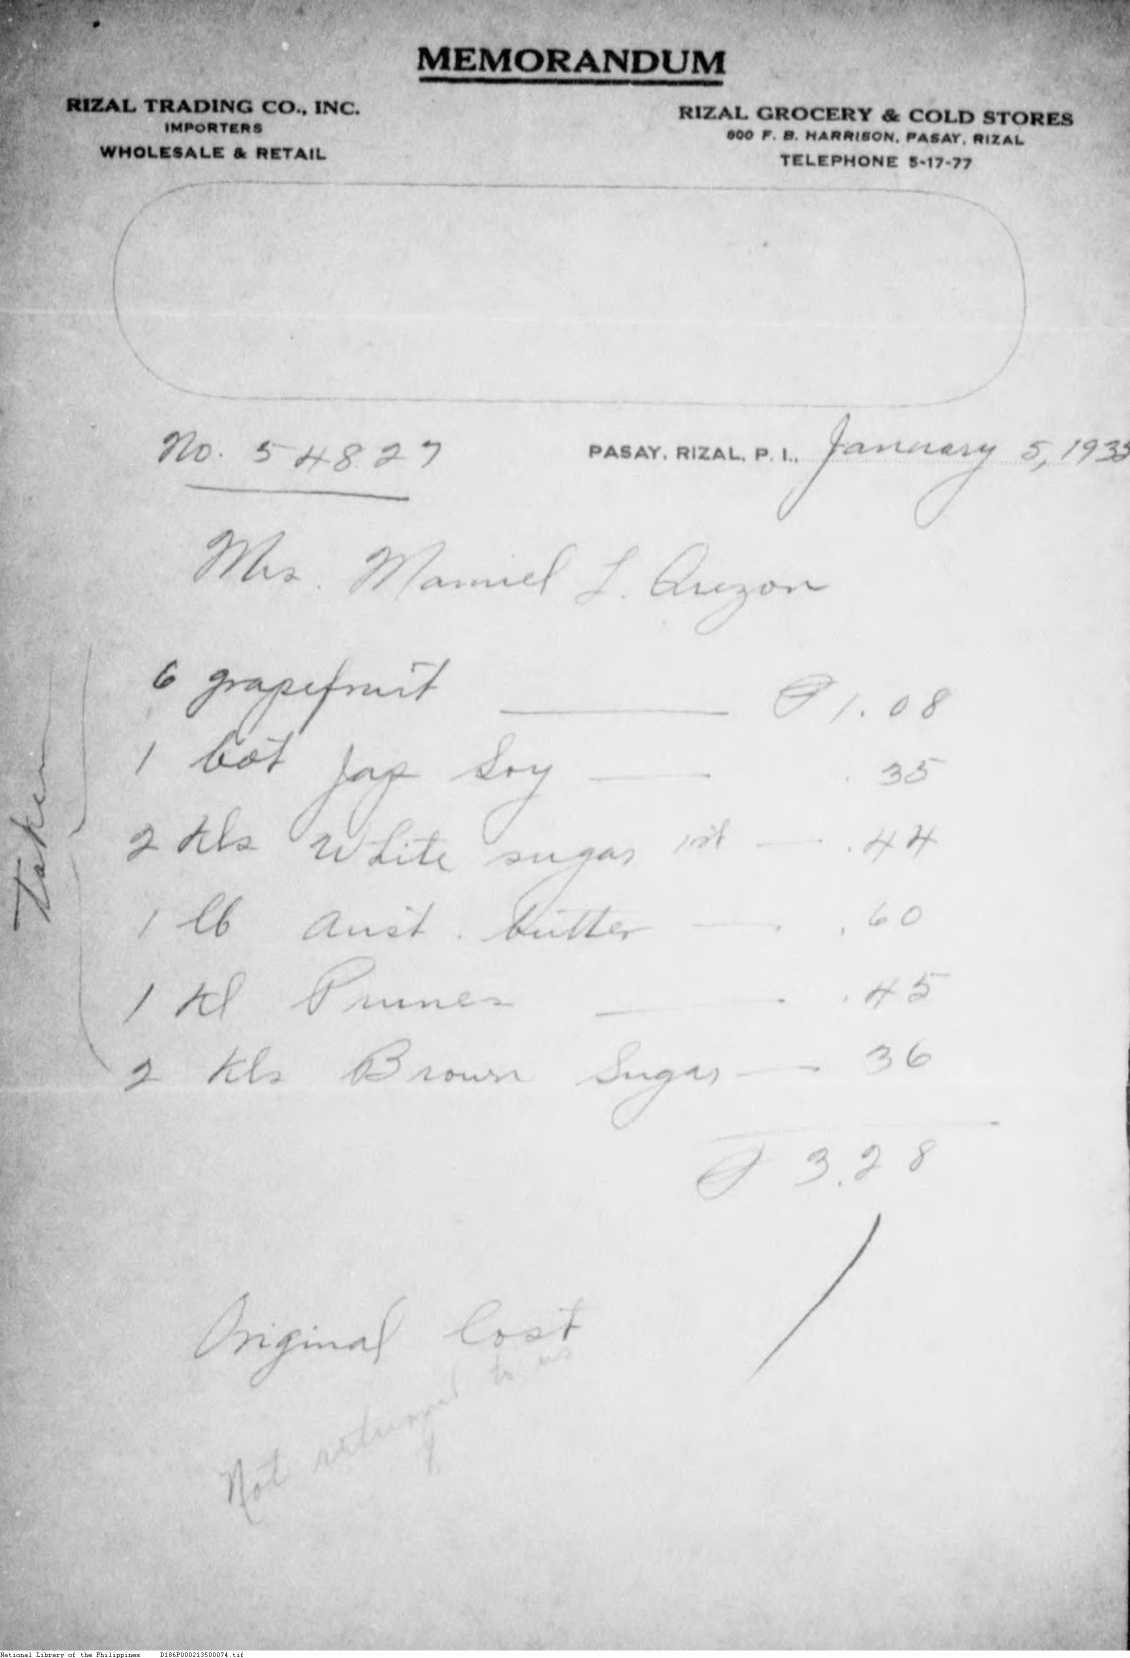 MEMORANDUM
RIZAL TRADING CO., INC.
IMPORTERS
WHOLESALE & RETAIL
RIZAL GROCERY & COLD STORES
800 F. B. HARRISON, PASAY, RIZAL
TELEPHONE 5-17-77
No. 54827
PASAY, RIZAL, P. I., January 5, 1935
Mrs. Manuel L. Quezon
Taken
6 grapefruit ₱1.08
1 bot Jap Soy .35
2 kls White sugar .44
1 lb Aust. butter .60
1 kl Prunes .45
2 kls Brown Sugar 36
₱ 3.28
Original Cost
Not returned to us
National Library of the Philippines D186P000213500074.tif